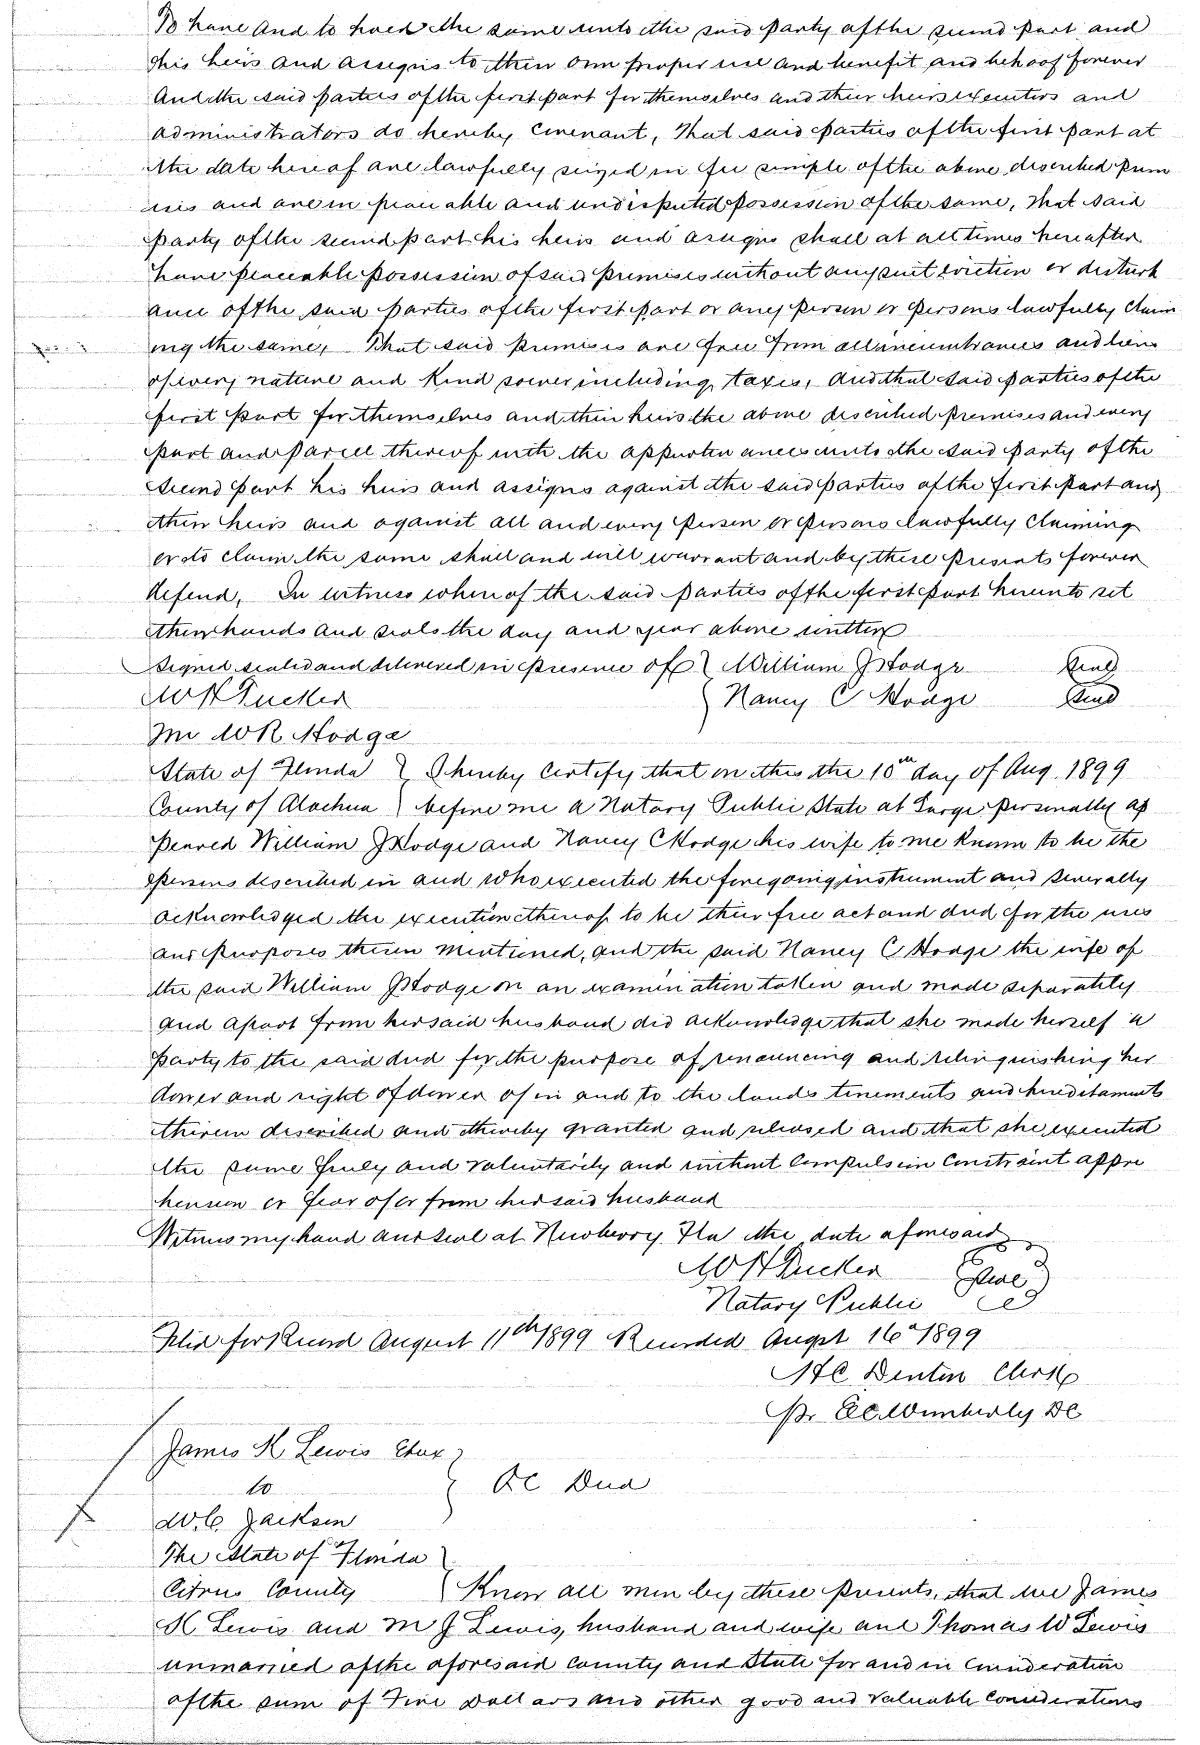 To have and to hold the same unto the said party of the second part and
his heirs and assigns to their own proper use and benefit and behoof forever
And the said parties of the first part for themselves and their heirs executors and
administrators do hereby covenant, That said parties of the first part at
the date hereof are lawfully seized in fee simple of the above described prem
ises and are in peaceable and undisputed possession of the same, That said
party of the second part his heirs and assigns shall at all times hereafter
have peaceable possession of said premises without any suit eviction or disturb
ance of the said parties of the first part or any person or persons lawfully claim
ing the same, That said premises are free from all incumbrances and liens
of every nature and kind soever including taxes, And that said parties of the
first part for themselves and their heirs the above described premises and every
part and parcel thereof with the appurten ances unto the said party of the
second part his heirs and assigns against the said parties of the first part and
their heirs and against all and every person or persons lawfully claiming
or to claim the same shall and will warrant and by these presents forever
defend, In witness whereof the said parties of the first part hereunto set
their hands and seals the day and year above written
Signed sealed and delivered in presence of } William J Hodge Seal
W H Tucker } Nancy C Hodge Seal
W R Hodge
State of Florida } I hereby certify that on this the 10th day of Aug. 1899
County of Alachua } before me a Notary Public State at Large personally ap
peared William J Hodge and Nancy C Hodge his wife to me known to be the
persons described in and who executed the foregoing instrument and severally
acknowledged the execution thereof to be their free act and deed for the uses
and purposes therein mentioned, and the said Nancy C Hodge the wife of
the said William J Hodge on an examin ation taken and made separately
and apart from her said husband did acknowledge that she made herself a
party to the said deed for the purpose of renouncing and relinquishing her
dower and right of dower of in and to the lands tenements and hereditaments
therein described and thereby granted and released and that she executed
the same freely and voluntarily and without compulsion constraint appre
hension or fear of or from her said husband
Witness my hand and seal at Newberry Fla the date aforesaid
W H Tucker Seal
Notary Public
Filed for Record August 11th 1899 Recorded Augst 16" 1899
H C Denton Clerk
Pr E C Wimberly DC
James K Lewis Etux }
to } QC Deed
W.C. Jackson
The State of Florida }
Citrus County } Know all men by these presents, that we James
K Lewis and M J Lewis, husband and wife and Thomas W Lewis
unmarried of the aforesaid County and State for and in consideration
of the sum of Five Dollars and other good and valuable considerations